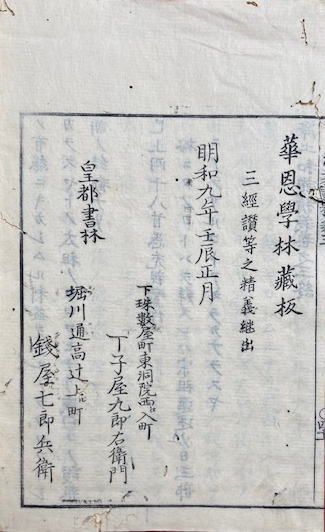 華恩學林藏板
三經讃等之精義継出
明和九年壬辰正月
下珠数屋町東洞院西入町
丁子屋九郎右衛門
皇都書林
堀川通高辻上町
錢屋七郎兵衛